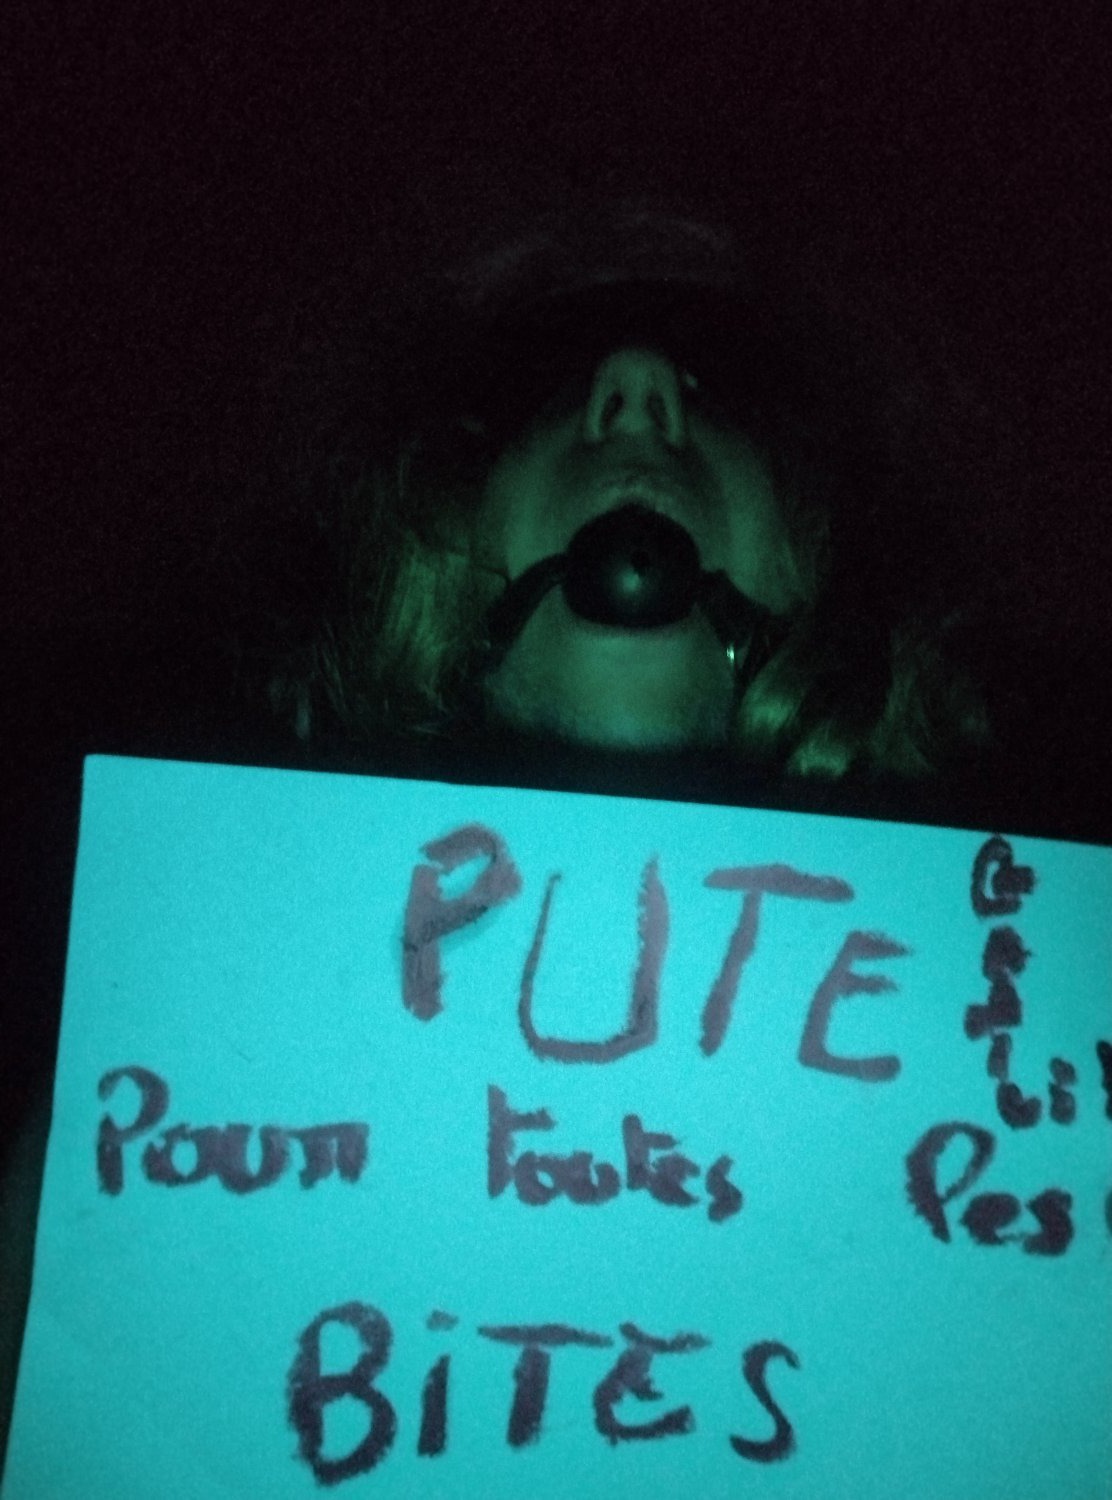 PUTE
Pour toutes les
BiTES